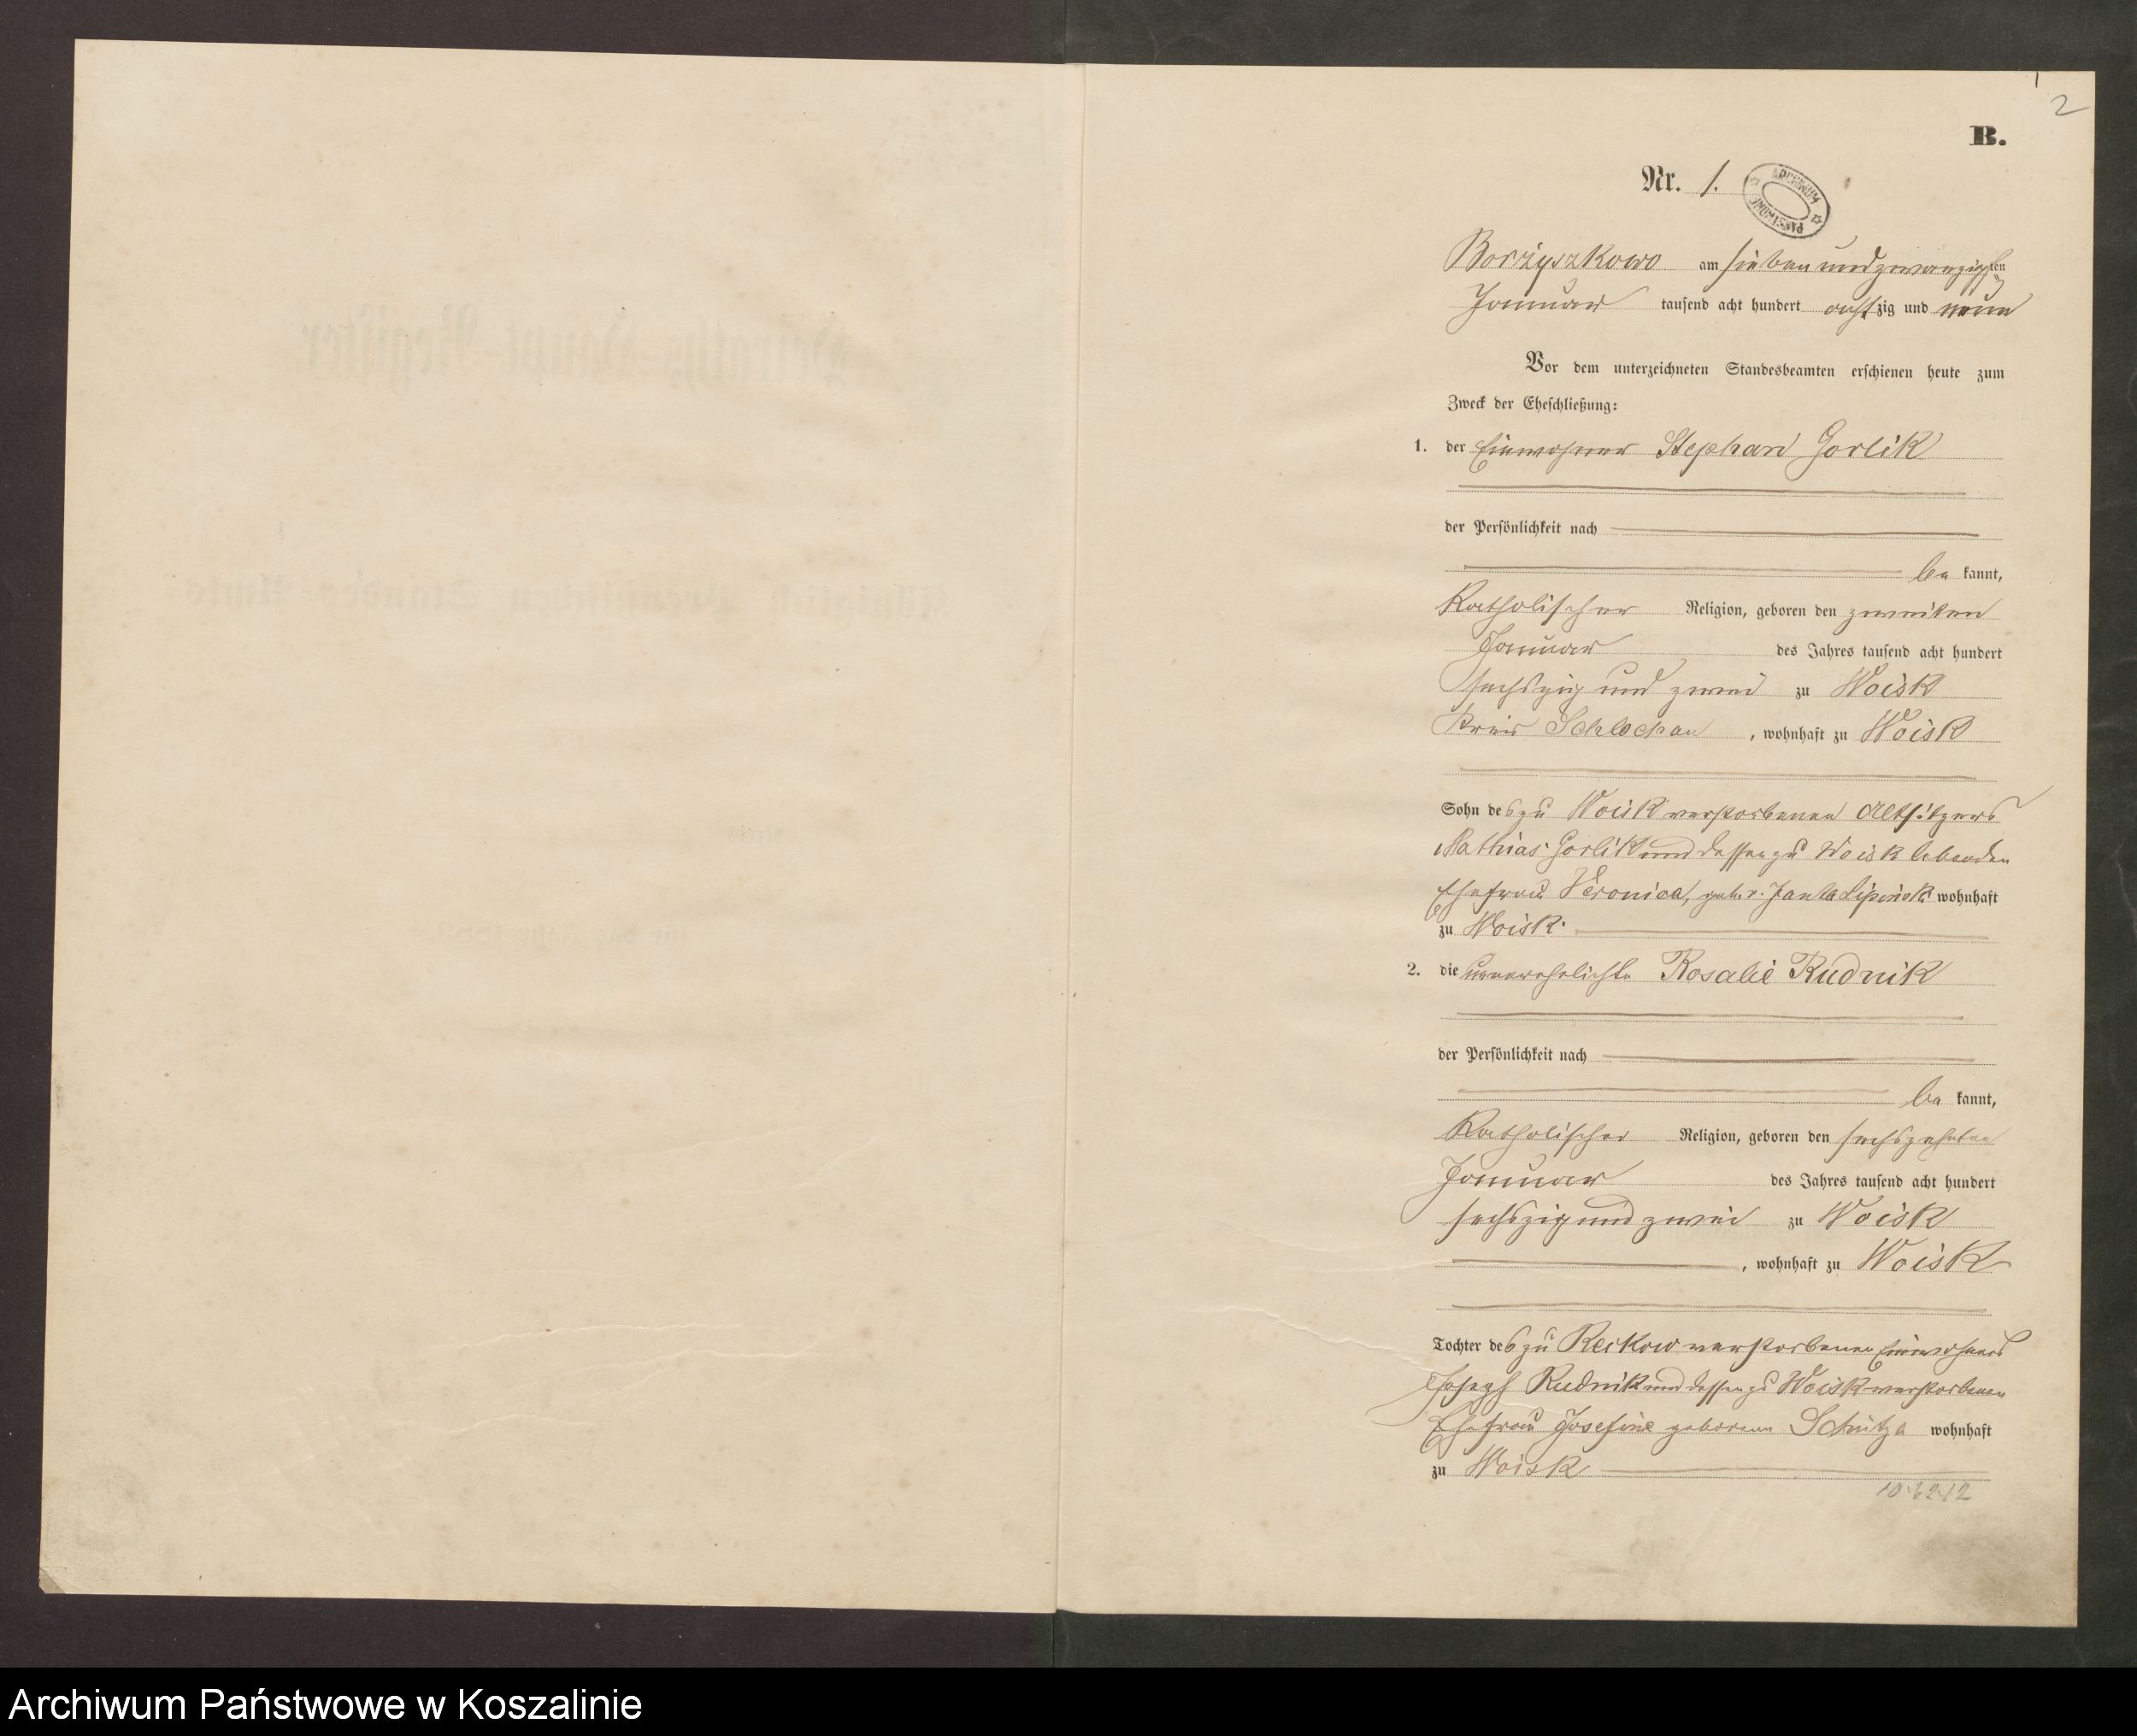 2
B.
Nr. 1.
ARCHIWUM PAŃSTWOWE
Borzyszkowo am sieben und zwanzigsten
Januar tausend acht hundert achtzig und neun
Vor dem unterzeichneten Standesbeamten erschienen heute zum
Zweck der Eheschließung:
1. der Einwohner Stephan Gorlik
der Persönlichkeit nach
be kannt,
Katholischer Religion, geboren den zweiten
Januar des Jahres tausend acht hundert
sechszig und zwei zu Woisk
Kreis Schlochau, wohnhaft zu Woisk
Sohn des zu Woisk verstorbenen Altsitzers
Mathias Gorlik und dessen zu Woisk lebenden
Ehefrau Veronica, geb. v. Janta Lipinski wohnhaft
zu Woisk.
2. die unverehelichte Rosalie Rudnik
der Persönlichkeit nach
be kannt,
Katholischer Religion, geboren den sechszehnten
Januar des Jahres tausend acht hundert
sechszig und zwei zu Woisk
, wohnhaft zu Woisk
Tochter des zu Reckow verstorbenen Einwohners
Joseph Rudnik und dessen zu Woisk verstorbenen
Ehefrau Josefine geborene wohnhaft
zu Woisk
Archiwum Państwowe w Koszalinie